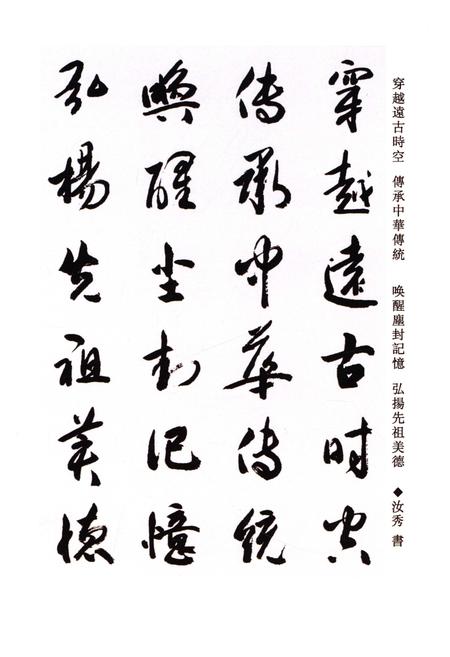 穿越遠古時空　傳承中華傳統　喚醒塵封記憶　弘揚先祖美德　◆汝秀 書
穿越遠古时空
传承中華传統
喚醒尘封记憶
弘楊先祖美德